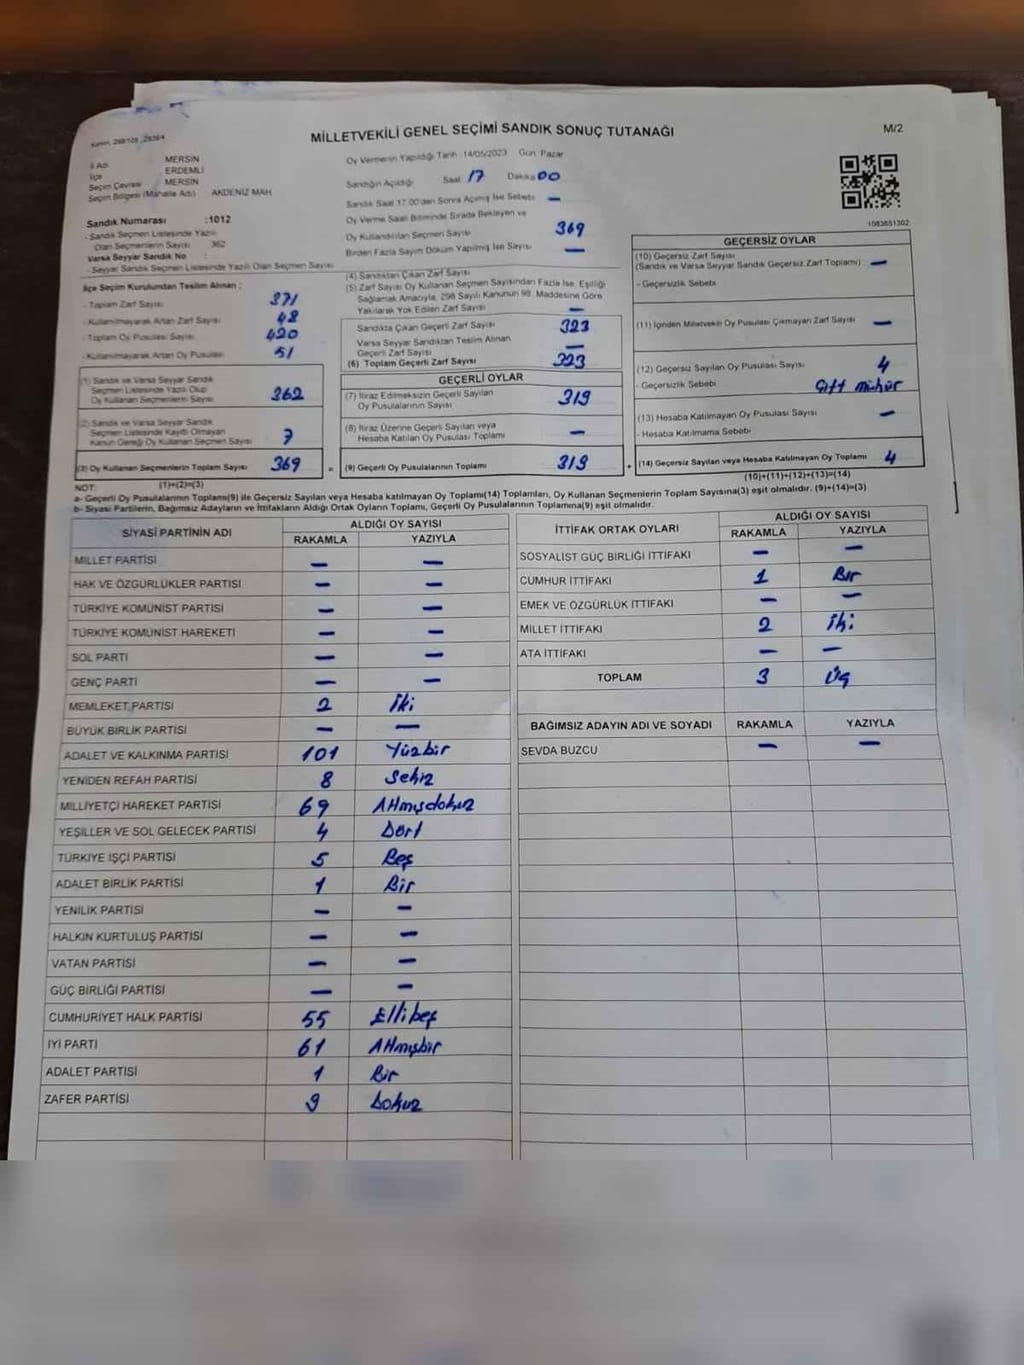 MİLLETVEKİLİ GENEL SEÇİMİ SANDIK SONUÇ TUTANAĞI
M/2
İl Adı MERSIN
İlçe ERDEMLİ
Seçim Çevresi MERSIN
Seçim Bölgesi (Mahalle Adı) AKDENİZ MAH
Sandık Numarası :1012
- Sandık Seçmen Listesinde Yazılı
Olan Seçmenlerin Sayısı 362
Varsa Seyyar Sandık No
- Seyyar Sandık Seçmen Listesinde Yazılı Olan Seçmen Sayısı
İlçe Seçim Kurulundan Teslim Alınan ;
- Toplam Zarf Sayısı 371
- Kullanılmayarak Artan Zarf Sayısı 48
- Toplam Oy Pusulası Sayısı 420
- Kullanılmayarak Artan Oy Pusulası 51
(1) Sandık ve Varsa Seyyar Sandık
Seçmen Listesinde Yazılı Olup
Oy Kullanan Seçmenlerin Sayısı 362
(2) Sandık ve Varsa Seyyar Sandık
Seçmen Listesinde Kayıtlı Olmayan
Kanun Gereği Oy Kullanan Seçmen Sayısı 7
(3) Oy Kullanan Seçmenlerin Toplam Sayısı 369
(1)+(2)=(3)
Oy Vermenin Yapıldığı Tarih :14/05/2023 Gün: Pazar
Sandığın Açıldığı Saat 17 Dakika 00
Sandık Saat 17:00'den Sonra Açılmış İse Sebebi –
Oy Verme Saati Bitiminde Sırada Bekleyen ve
Oy Kullandırılan Seçmen Sayısı 369
Birden Fazla Sayım Döküm Yapılmış İse Sayısı –
(4) Sandıktan Çıkan Zarf Sayısı
(5) Zarf Sayısı Oy Kullanan Seçmen Sayısından Fazla İse, Eşitliği
Sağlamak Amacıyla, 298 Sayılı Kanunun 98. Maddesine Göre
Yakılarak Yok Edilen Zarf Sayısı –
Sandıkta Çıkan Geçerli Zarf Sayısı 323
Varsa Seyyar Sandıktan Teslim Alınan
Geçerli Zarf Sayısı –
(6) Toplam Geçerli Zarf Sayısı 323
GEÇERLİ OYLAR
(7) İtiraz Edilmeksizin Geçerli Sayılan
Oy Pusulalarının Sayısı 319
(8) İtiraz Üzerine Geçerli Sayılan veya
Hesaba Katılan Oy Pusulası Toplamı –
= (9) Geçerli Oy Pusulalarının Toplamı 319
1083651302
GEÇERSİZ OYLAR
(10) Geçersiz Zarf Sayısı
(Sandık ve Varsa Seyyar Sandık Geçersiz Zarf Toplamı) –
- Geçersizlik Sebebi
(11) İçinden Milletvekili Oy Pusulası Çıkmayan Zarf Sayısı –
(12) Geçersiz Sayılan Oy Pusulası Sayısı 4
- Geçersizlik Sebebi Çift mühür
(13) Hesaba Katılmayan Oy Pusulası Sayısı –
- Hesaba Katılmama Sebebi
+ (14) Geçersiz Sayılan veya Hesaba Katılmayan Oy Toplamı 4
(10)+(11)+(12)+(13)=(14)
NOT:
a- Geçerli Oy Pusulalarının Toplamı(9) ile Geçersiz Sayılan veya Hesaba katılmayan Oy Toplamı(14) Toplamları, Oy Kullanan Seçmenlerin Toplam Sayısına(3) eşit olmalıdır. (9)+(14)=(3)
b- Siyasi Partilerin, Bağımsız Adayların ve İttifakların Aldığı Ortak Oyların Toplamı, Geçerli Oy Pusulalarının Toplamına(9) eşit olmalıdır.
SİYASİ PARTİNİN ADI ALDIĞI OY SAYISI
RAKAMLA YAZIYLA
MİLLET PARTİSİ – –
HAK VE ÖZGÜRLÜKLER PARTİSİ – –
TÜRKİYE KOMÜNİST PARTİSİ – –
TÜRKİYE KOMÜNİST HAREKETİ – –
SOL PARTİ – –
GENÇ PARTİ – –
MEMLEKET PARTİSİ 2 İki
BÜYÜK BİRLİK PARTİSİ – –
ADALET VE KALKINMA PARTİSİ 101 Yüzbir
YENİDEN REFAH PARTİSİ 8 Sekiz
MİLLİYETÇİ HAREKET PARTİSİ 69 Altmışdokuz
YEŞİLLER VE SOL GELECEK PARTİSİ 4 Dört
TÜRKİYE İŞÇİ PARTİSİ 5 Beş
ADALET BİRLİK PARTİSİ 1 Bir
YENİLİK PARTİSİ – –
HALKIN KURTULUŞ PARTİSİ – –
VATAN PARTİSİ – –
GÜÇ BİRLİĞİ PARTİSİ – –
CUMHURİYET HALK PARTİSİ 55 Ellibeş
İYİ PARTİ 61 Altmışbir
ADALET PARTİSİ 1 Bir
ZAFER PARTİSİ 9 Dokuz
İTTİFAK ORTAK OYLARI ALDIĞI OY SAYISI
RAKAMLA YAZIYLA
SOSYALİST GÜÇ BİRLİĞİ İTTİFAKI – –
CUMHUR İTTİFAKI 1 Bir
EMEK VE ÖZGÜRLÜK İTTİFAKI – –
MİLLET İTTİFAKI 2 İki
ATA İTTİFAKI – –
TOPLAM 3 Üç
BAĞIMSIZ ADAYIN ADI VE SOYADI RAKAMLA YAZIYLA
SEVDA BUZCU – –